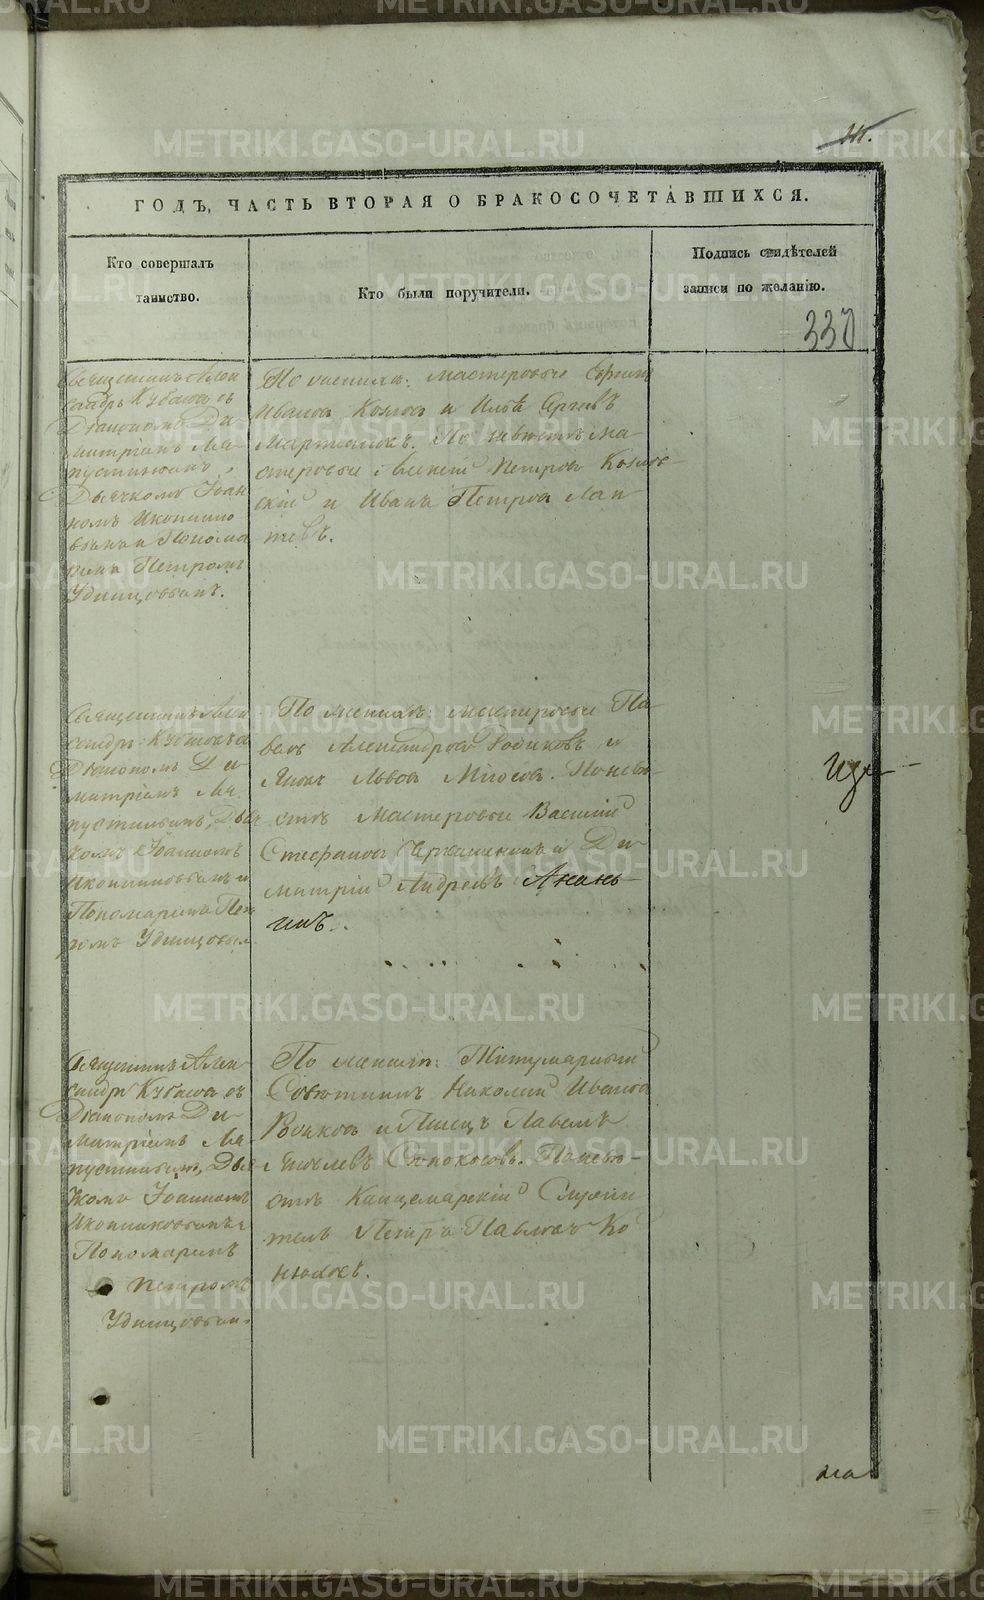 ГОДЪ, ЧАСТЬ ВТОРАЯ О БРАКОСОЧЕТАВШИХСЯ.
Кто совершалъ
таинство.
Кто были поручители.
Подпись свидѣтелей
записи по желанію.
330
Священникъ Алек
сандръ Кубасовъ съ
Діакономъ Ди
митріемъ Ма
пустинымъ,
Дьячкомъ Іоан
номъ Иконнико
вымъ и Понома
ремъ Петромъ
Удинцовымъ.
По женихѣ: мастеровые
Иванов и Илья
По невѣстѣ ма
стеровые Петров Козлов
скій и Иванъ Петров Лап
тевъ.
Священникъ Алек
сандръ Кубасовъ съ
Діакономъ Ди
митріемъ Ма
пустинымъ, Дьяч
комъ Іоанномъ
Иконниковымъ и
Пономаремъ Пет
ромъ Удинцовым
По женихѣ: мастеровые Па
велъ Александров и
Львов По невѣ
стѣ Мастеровые Василій
Стефанов и Ди
митрій Андреевъ Анань
инъ.
Священникъ Алек
сандръ Кубасовъ съ
Діакономъ Ди
митріемъ Ма
пустинымъ, Дьяч
комъ Іоанномъ
Иконниковымъ и
Пономаремъ
Петромъ
Удинцовым.
По женихѣ: Титулярный
Совѣтникъ Николай Иванов
Волков и Писецъ Павелъ
Яковлевъ Сѣнокосовъ. По невѣ
стѣ Канцелярскій Служи
тель Петръ Павловъ Ко
нюховъ.
METRIKI.GASO-URAL.RU